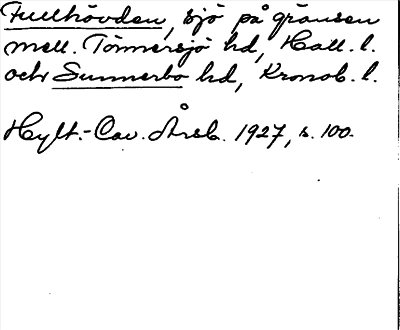 Fullhövden, sjö på gränsen
mell. Tönnersjö hd, Hall. l.
och Sunnerbo hd, Kronob. l.
Hylt.-Cav. Årsb. 1927, s. 100.